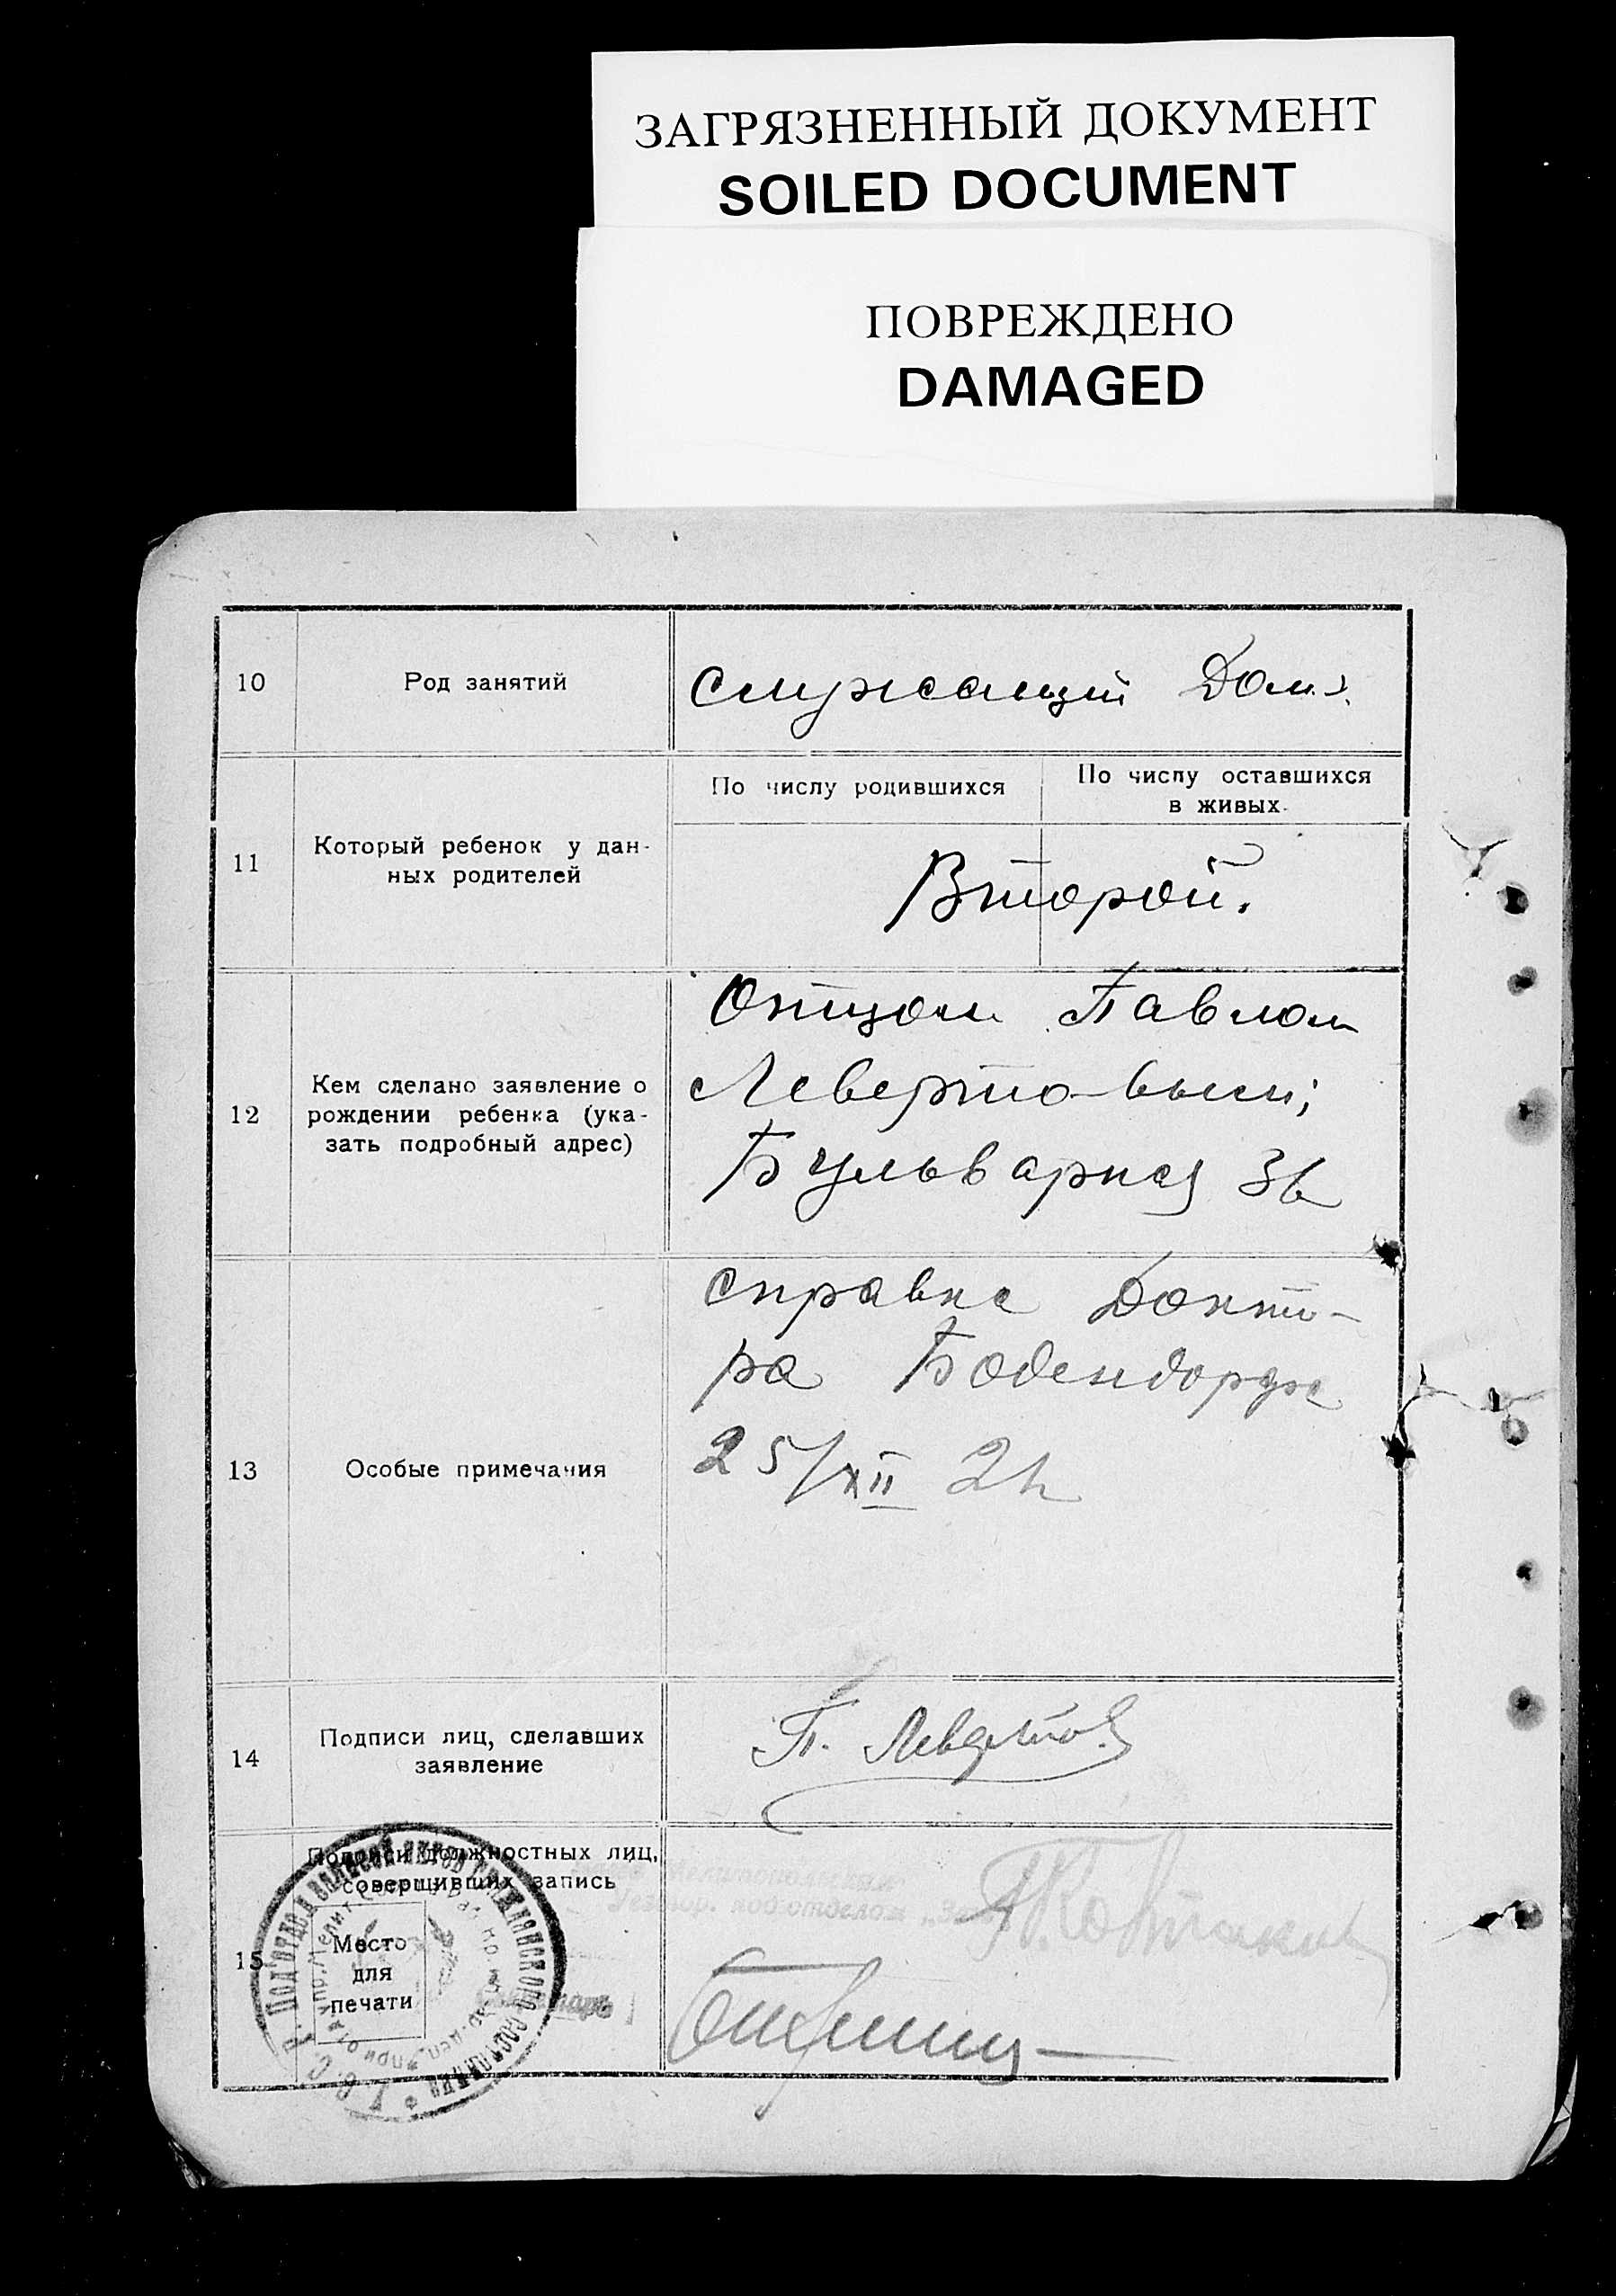 ЗАГРЯЗНЕННЫЙ ДОКУМЕНТ
SOILED DOCUMENT
ПОВРЕЖДЕНО
DAMAGED
10
Род занятий
служащий Дом.
11
Который ребенок у дан-
ных родителей
По числу родившихся
По числу оставшихся
в живых.
Второй.
12
Кем сделано заявление о
рождении ребенка (ука-
зать подробный адрес)
Отцом Павлом
Левертовым;
Бульварная
13
Особые примечания
справка Докто-
ра
25/XII
14
Подписи лиц, сделавших
заявление
П. Левертов
15
Подписи должностных лиц,
совершивших запись
Место
для
печати